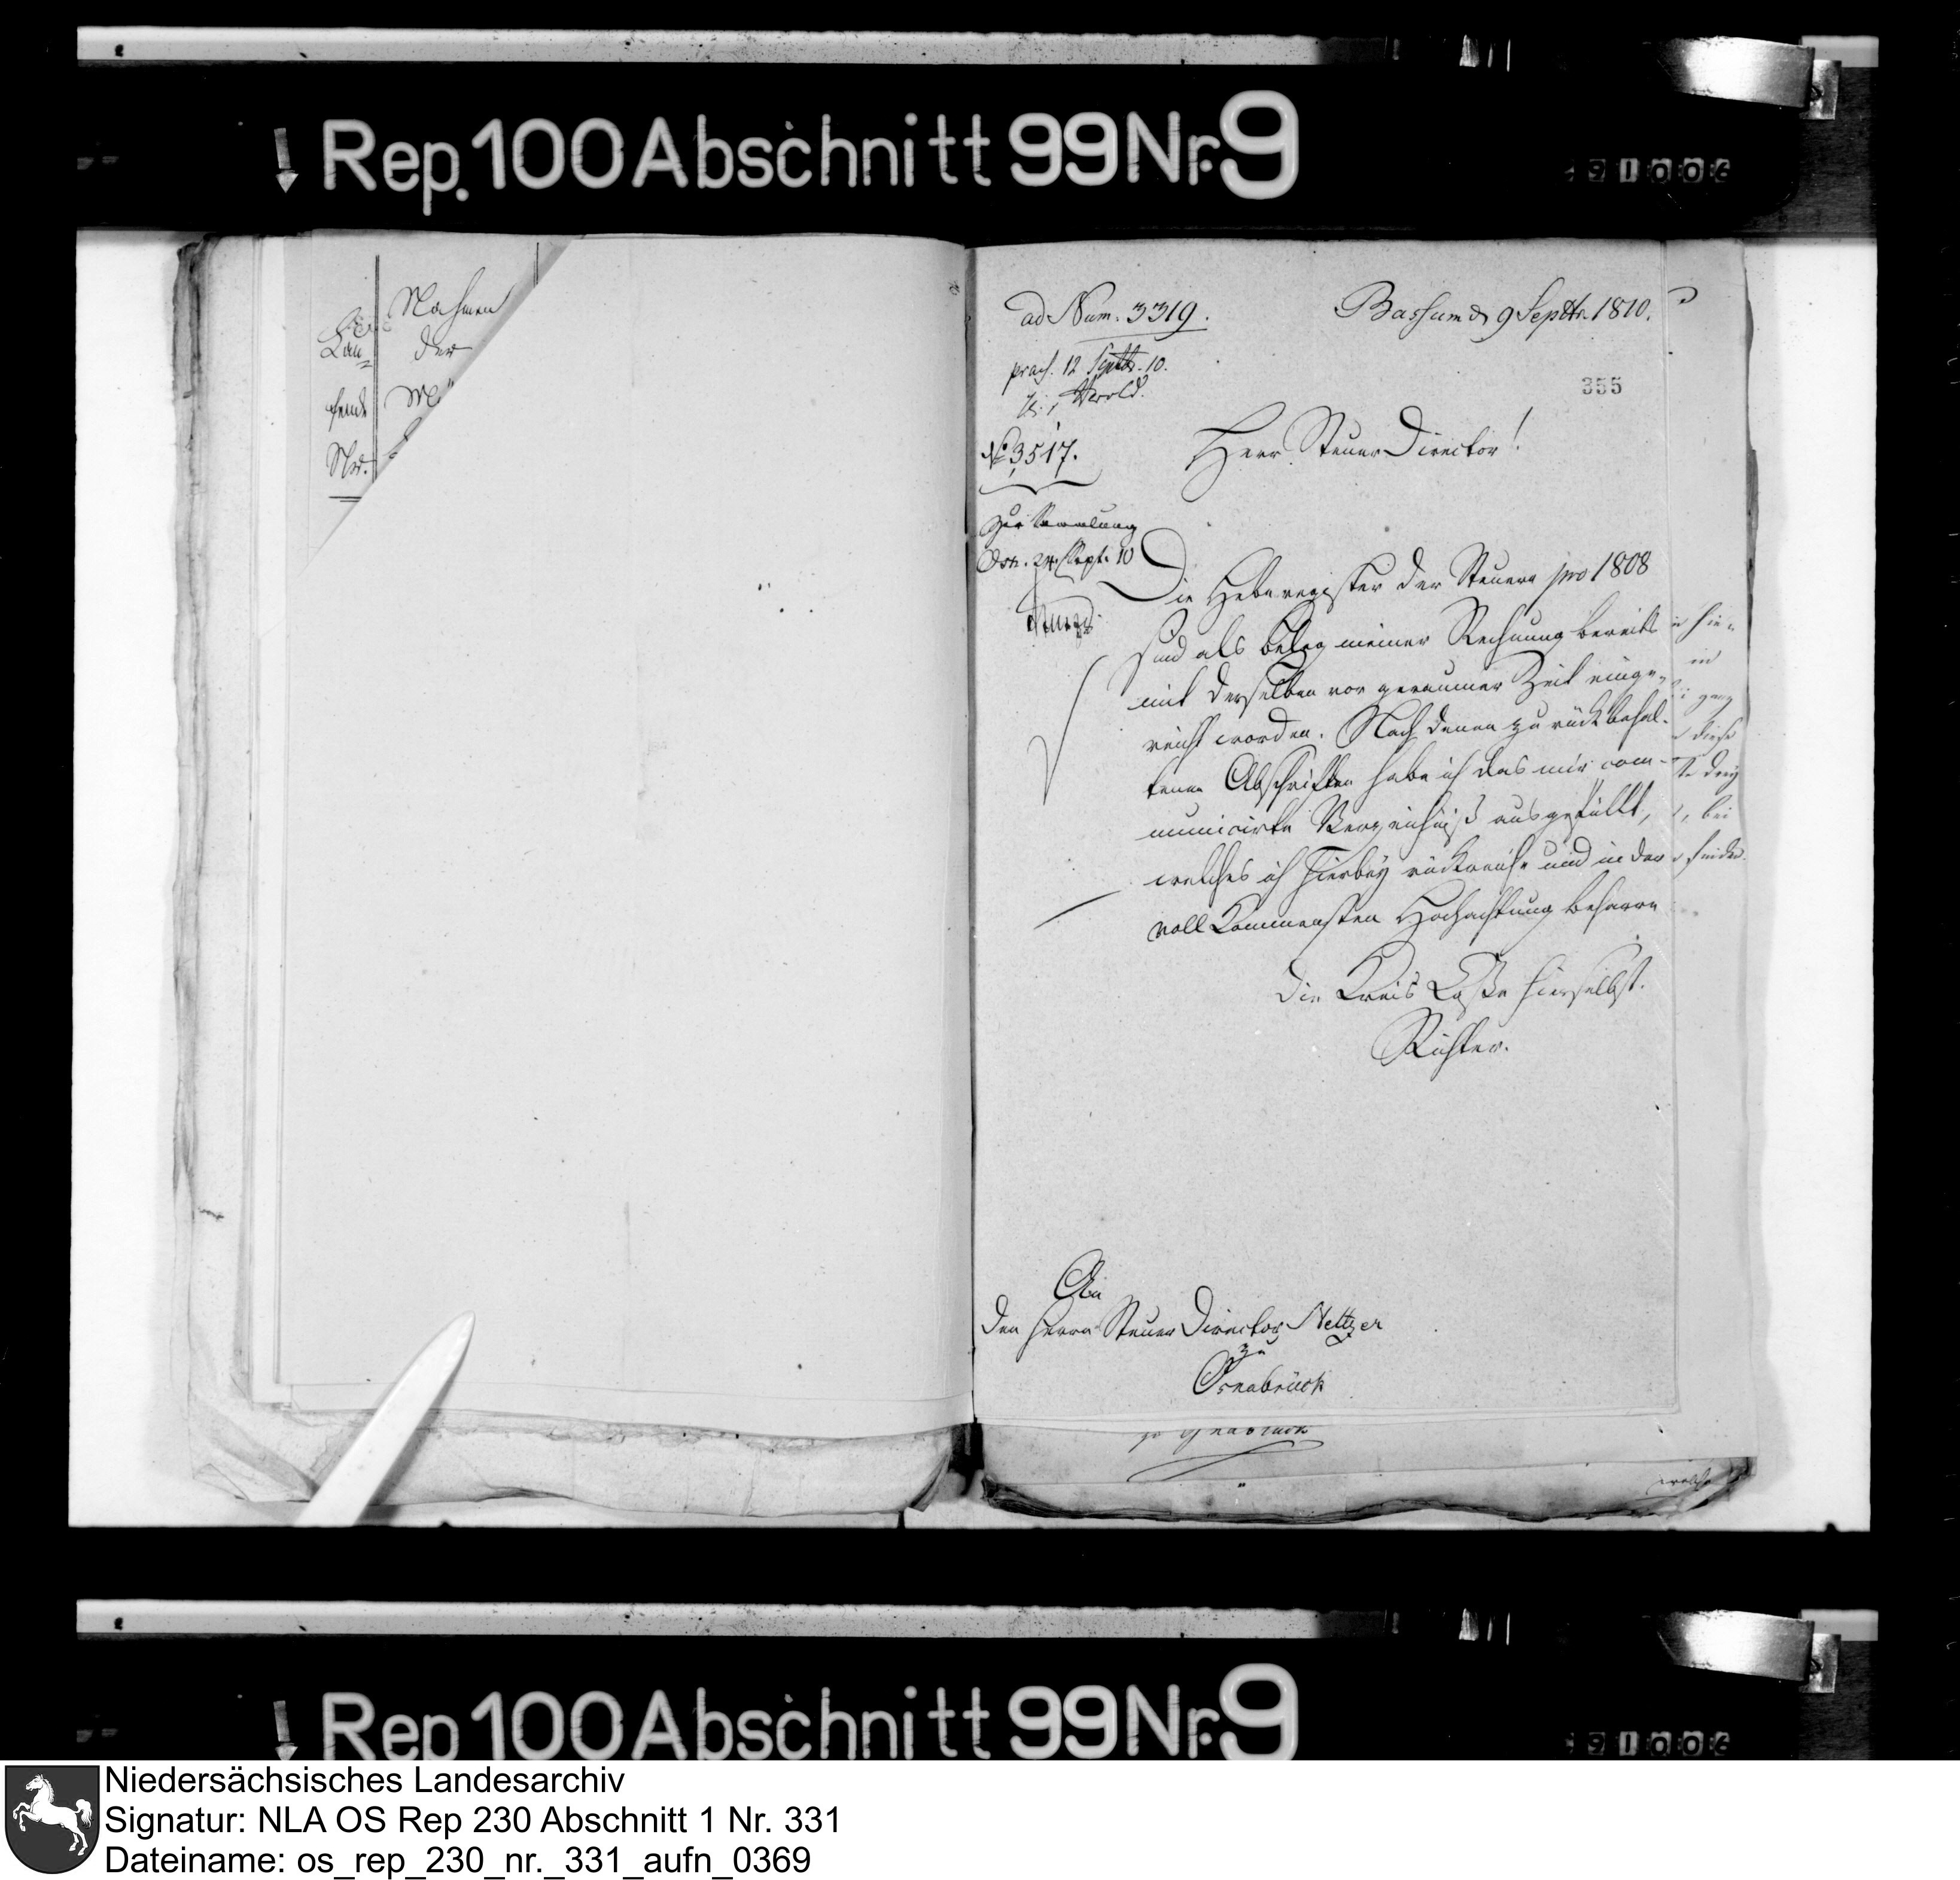 Rep. 100 Abschnitt 99 Nr. 9
Nahmen
Lau-
der
fende
Nro.
ad Num. 3319.
Bassum d 9 Septbr. 1810.
praes. 12 Septbr. 10.
355
No 3517.
Herr Steuer Director!
Zur Samlung
Osn. 24. Sept. 10
Die Heberegister der Steuern pro 1808
sind als Beleg meiner Rechnung bereits
mit derselben vor geraumer Zeit einge-
reicht worden. Nach denen zurückbehal-
tenen Abschriften habe ich das mir com-
municirte Verzeichniß ausgefüllt,
welches ich hierbey rückreiche und in der
vollkommensten Hochachtung beharre
die Kreis Casse hierselbst.
Richter.
An
den Herrn Steuer Director Meltzer
zu
Osnabrück
zu Osnabrück
welche
Rep 100 Abschnitt 99 Nr. 9
Niedersächsisches Landesarchiv
Signatur: NLA OS Rep 230 Abschnitt 1 Nr. 331
Dateiname: os_rep_230_nr._331_aufn_0369